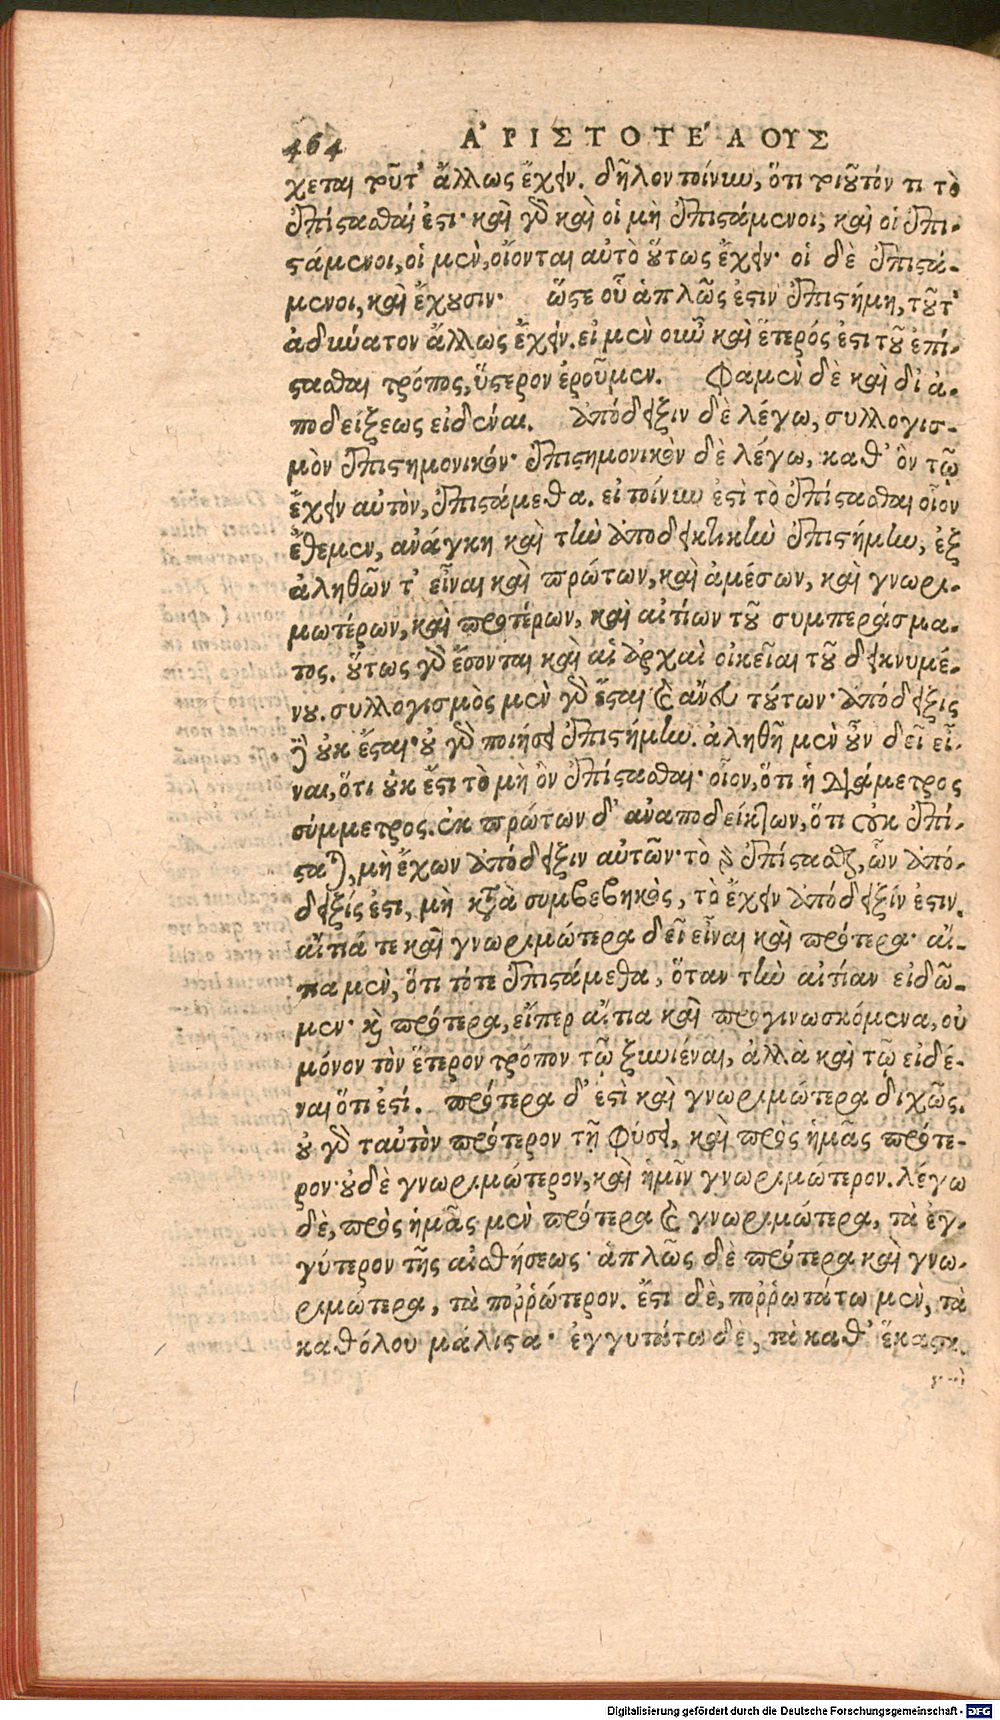 464 ἈΡΙΣΤΟΤΕ´ΛΟΥΣ
χεται τοῦτ' ἄλλως ἔχειν. δῆλον τοίνυν, ὅτι τοιοῦτόν τι τὸ
ἐπίστασθαί ἐστι· καὶ γὰρ καὶ οἱ μὴ ἐπιστάμενοι, καὶ οἱ ἐπι-
στάμενοι, οἱ μὲν, οἴονται αὐτὸ οὕτως ἔχειν· οἱ δὲ ἐπιστά-
μενοι, καὶ ἔχουσιν· ὥστε οὗ ἁπλῶς ἐστὶν ἐπιστήμη, τοῦτ'
ἀδύνατον ἄλλως ἔχειν. εἰ μὲν οὖν καὶ ἕτερός ἐστι τοῦ ἐπί-
στασθαι τρόπος, ὕστερον ἐροῦμεν. Φαμὲν δὲ καὶ δι' ἀ-
ποδείξεως εἰδέναι. ἀπόδειξιν δὲ λέγω, συλλογισ-
μὸν ἐπιστημονικόν· ἐπιστημονικὸν δὲ λέγω, καθ' ὃν τῷ
ἔχειν αὐτὸν, ἐπιστάμεθα. εἰ τοίνυν ἐστὶ τὸ ἐπίστασθαι οἷον
ἔθεμεν, ἀνάγκη καὶ τὴν ἀποδεικτικὴν ἐπιστήμην, ἐξ
ἀληθῶν τ' εἶναι καὶ πρώτων, καὶ ἀμέσων, καὶ γνωρι-
μωτέρων, καὶ προτέρων, καὶ αἰτίων τοῦ συμπεράσμα-
τος. οὕτως γὰρ ἔσονται καὶ αἱ ἀρχαὶ οἰκεῖαι τοῦ δεικνυμέ-
νου. συλλογισμὸς μὲν γὰρ ἔσται καὶ ἄνευ τούτων· ἀπόδειξις
δὲ οὐκ ἔσται· οὐ γὰρ ποιήσει ἐπιστήμην. ἀληθῆ μὲν οὖν δεῖ εἶ-
ναι, ὅτι οὐκ ἔστι τὸ μὴ ὂν ἐπίστασθαι· οἷον, ὅτι ἡ διάμετρος
σύμμετρος. ἐκ πρώτων δ' ἀναποδείκτων, ὅτι οὐκ ἐπί-
σταται, μὴ ἔχων ἀπόδειξιν αὐτῶν· τὸ γὰρ ἐπίστασθαι, ὧν ἀπό-
δειξίς ἐστι, μὴ κατὰ συμβεβηκὸς, τὸ ἔχειν ἀπόδειξίν ἐστιν.
αἴτιά τε καὶ γνωριμώτερα δεῖ εἶναι καὶ πρότερα· αἴ-
τια μὲν, ὅτι τότε ἐπιστάμεθα, ὅταν τὴν αἰτίαν εἰδῶ-
μεν· καὶ πρότερα, εἴπερ αἴτια καὶ προγινωσκόμενα, οὐ
μόνον τὸν ἕτερον τρόπον τῷ ξυνιέναι, ἀλλὰ καὶ τῷ εἰδέ-
ναι ὅτι ἐστί. πρότερα δ' ἐστὶ καὶ γνωριμώτερα διχῶς.
οὐ γὰρ ταὐτὸν πρότερον τῇ φύσει, καὶ πρὸς ἡμᾶς πρότε-
ρον· οὐδὲ γνωριμώτερον, καὶ ἡμῖν γνωριμώτερον. λέγω
δὲ, πρὸς ἡμᾶς μὲν πρότερα καὶ γνωριμώτερα, τὰ ἐγ-
γύτερον τῆς αἰσθήσεως· ἁπλῶς δὲ πρότερα καὶ γνω-
ριμώτερα, τὰ ποῤῥώτερον. ἔστι δὲ, ποῤῥωτάτω μὲν, τὰ
καθόλου μάλιστα· ἐγγυτάτω δὲ, τὰ καθ' ἕκαστα.
Digitalisierung gefördert durch die Deutsche Forschungsgemeinschaft - DFG